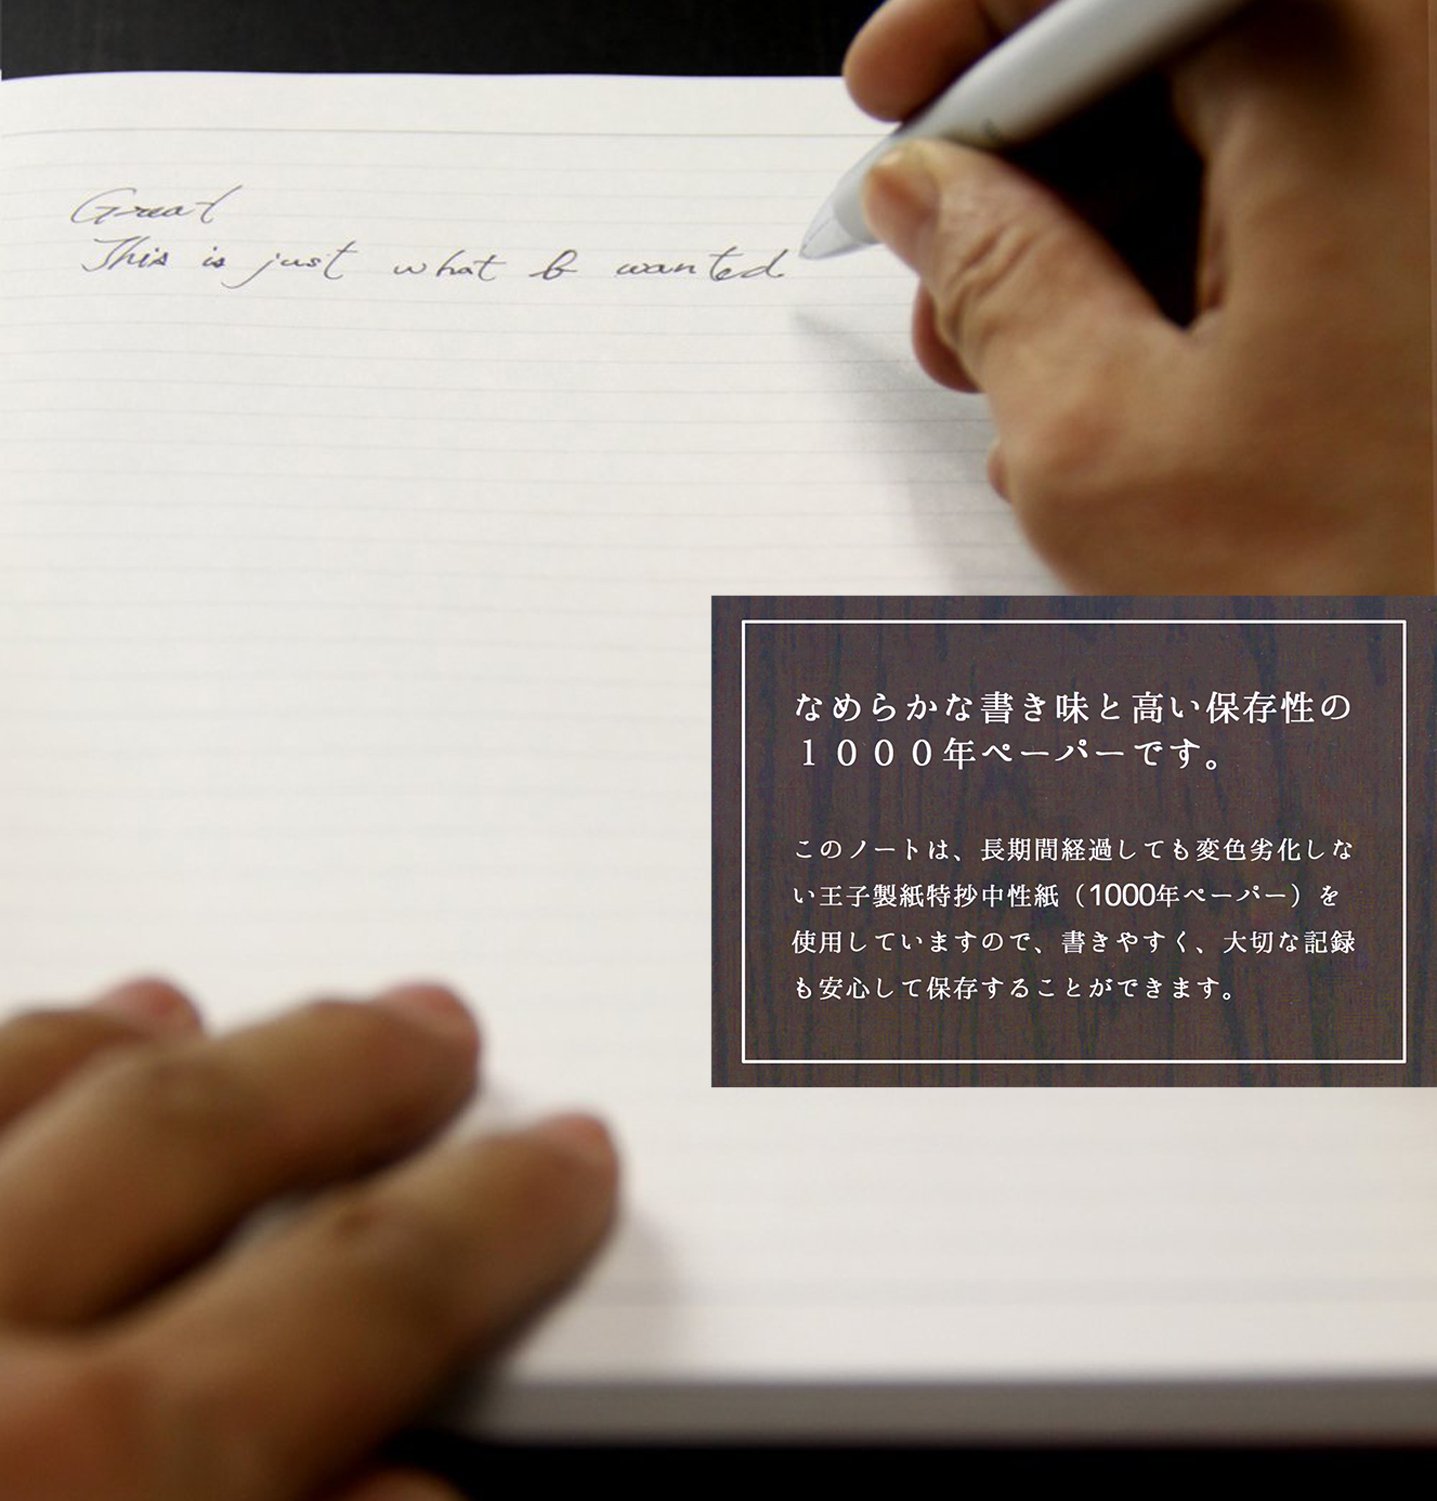 Great
This is just what & wanted.
なめらかな書き味と高い保存性の
１０００年ペーパーです。
このノートは、長期間経過しても変色劣化しな
い王子製紙特抄中性紙（1000年ペーパー）を
使用していますので、書きやすく、大切な記録
も安心して保存することができます。